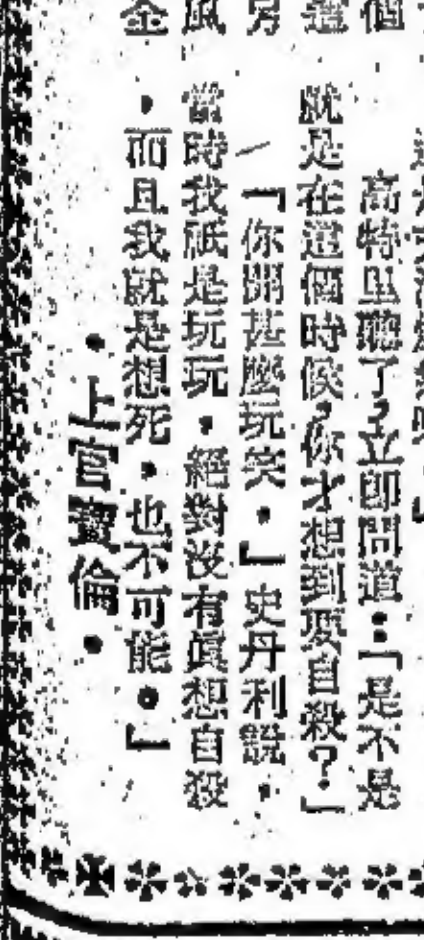 高特里聽了，立卽問道：「是不是
就是在這個時候，你才想到要自殺？」
「你開甚麽玩笑。」史丹利說，
當時我祗是玩玩，絕對沒有眞想自殺
，而且我就是想死，也不可能。」
・上官寶倫・